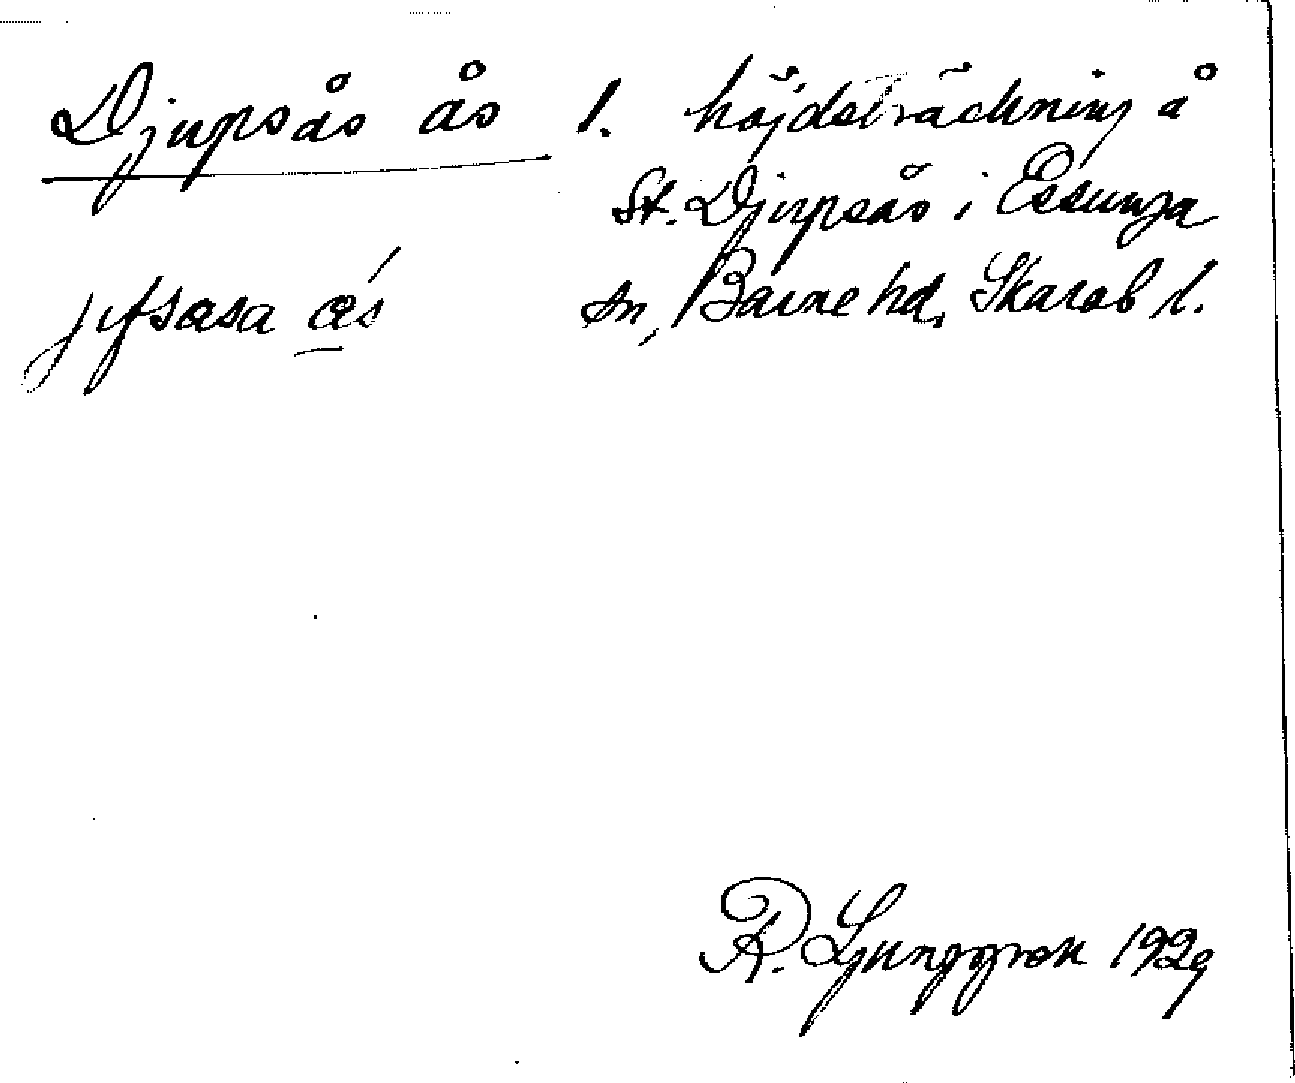 Djupsås ås 1. höjdsträckning å
St. Djupsås i Essunga
sn, Barne hd, Skarab l.
R. Ljunggren 1929